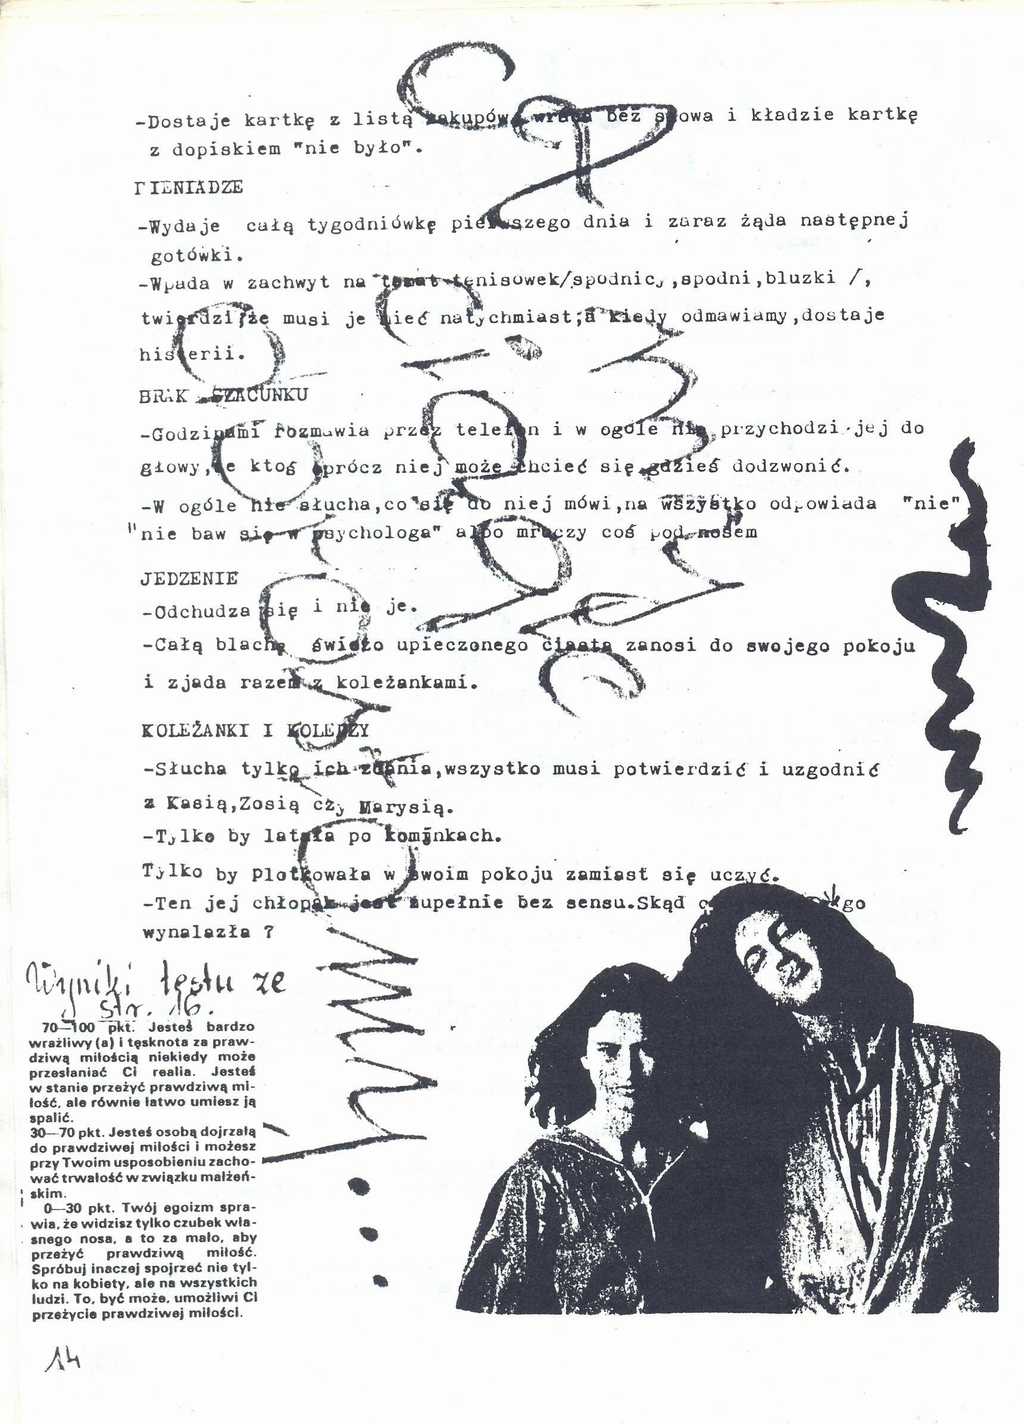 -Dostaje kartkę z listą zakupów, wraca bez słowa i kładzie kartkę
z dopiskiem "nie było".
PIENIADZE
-Wydaje całą tygodniówkę pierwszego dnia i zaraz żąda następnej
gotówki.
-Wpada w zachwyt na temat tenisowek/spodnicy ,spodni,bluzki /,
twierdzi,że musi je mieć natychmiast;a kiedy odmawiamy,dostaje
histerii.
BRAK SZACUNKU
-Godzinami rozmawia przez telefon i w ogóle nie przychodzi jej do
głowy,że ktoś oprócz niej może chcieć się gdzieś dodzwonić.
-W ogóle nie słucha,co się do niej mówi,na wszystko odpowiada "nie"
"nie baw się w psychologa" albo mruczy coś pod nosem
JEDZENIE
-Odchudza się i nie je.
-Całą blachę świeżo upieczonego ciasta zanosi do swojego pokoju
i zjada razem z koleżankami.
KOLEŻANKI I KOLEDZY
-Słucha tylko ich zdania,wszystko musi potwierdzić i uzgodnić
z Kasią,Zosią czy Marysią.
-Tylko by latała po kominkach.
Tylko by plotkowała w swoim pokoju zamiast się uczyć.
-Ten jej chłopak jest zupełnie bez sensu.Skąd go
wynalazła ?
Wyniki testu ze
str. 16.
70—100 pkt. Jesteś bardzo
wrażliwy (a) i tęsknota za praw-
dziwą miłością niekiedy może
przesłaniać Ci realia. Jesteś
w stanie przeżyć prawdziwą mi-
łość, ale równie łatwo umiesz ją
spalić.
30—70 pkt. Jesteś osobą dojrzałą
do prawdziwej miłości i możesz
przy Twoim usposobieniu zacho-
wać trwałość w związku małżeń-
skim.
0—30 pkt. Twój egoizm spra-
wia, że widzisz tylko czubek wła-
snego nosa, a to za mało, aby
przeżyć prawdziwą miłość.
Spróbuj inaczej spojrzeć nie tyl-
ko na kobiety, ale na wszystkich
ludzi. To, być może, umożliwi Ci
przeżycie prawdziwej miłości.
14